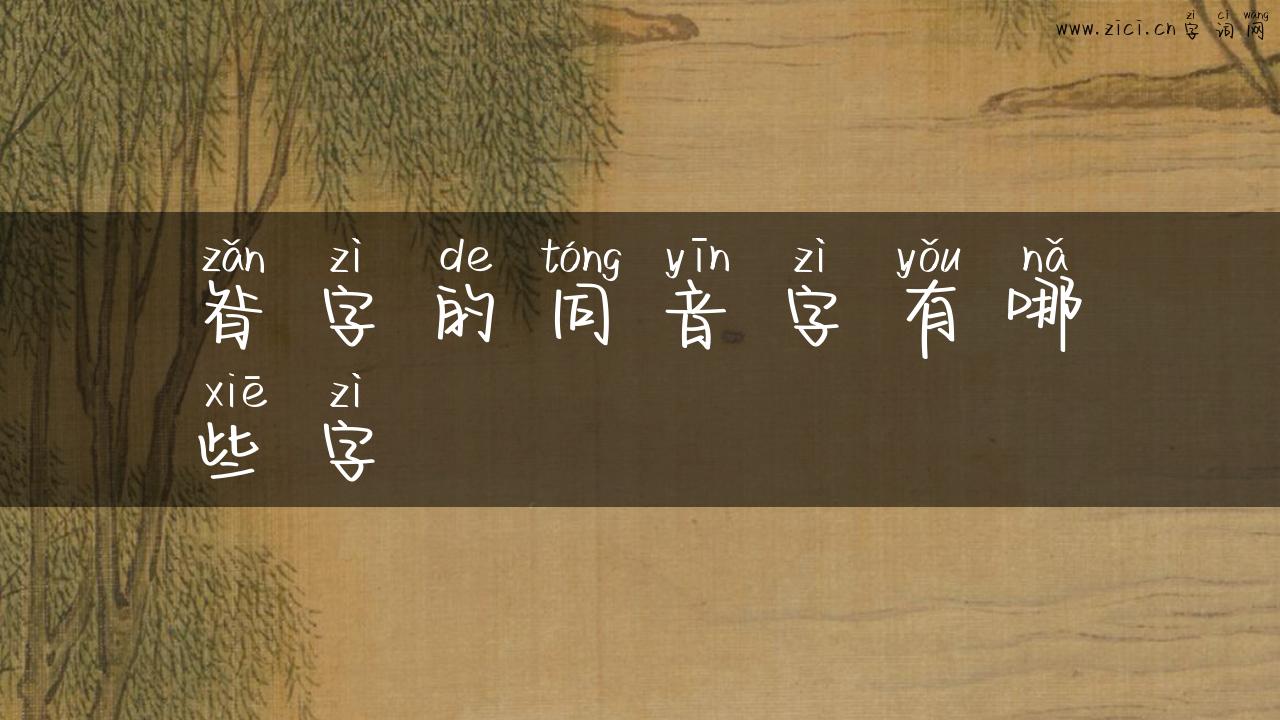 www.zici.cn
zì cí wǎng
字词网
zǎn zì de tóng yīn zì yǒu nǎ
昝字的同音字有哪
xiē zì
些字